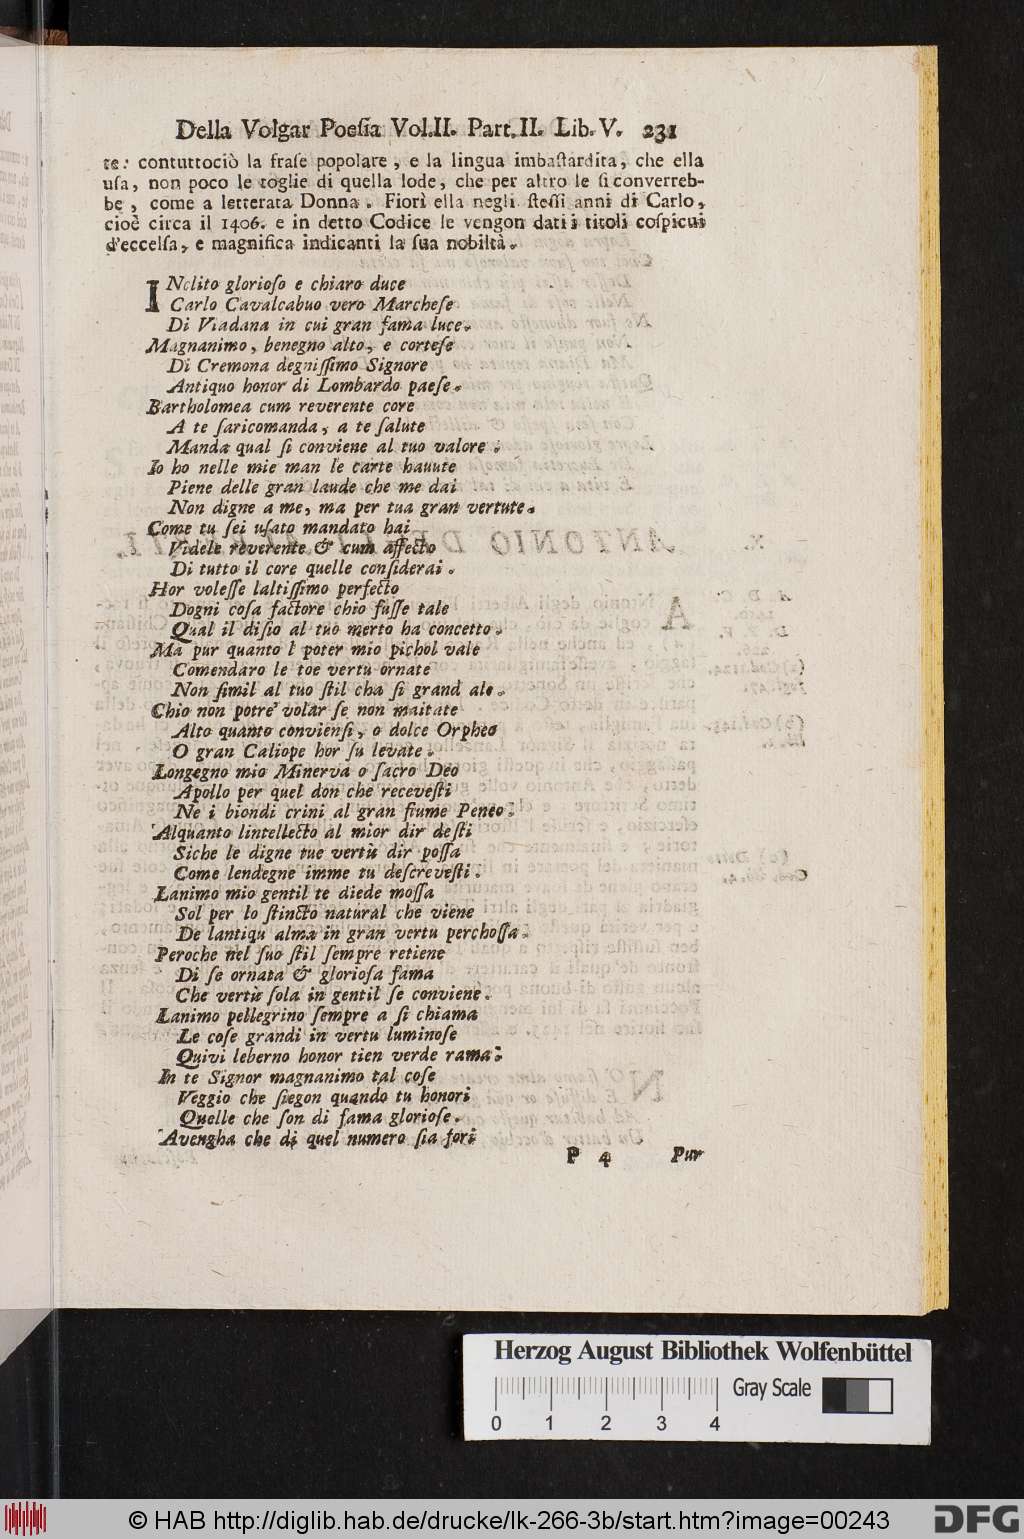 Della Volgar Poesia Vol.II. Part.II. Lib.V. 231
te: contuttociò la frase popolare, e la lingua imbastardita, che ella
usa, non poco le toglie di quella lode, che per altro le si converreb-
be, come a letterata Donna. Fiorì ella negli stessi anni di Carlo,
cioè circa il 1406. e in detto Codice le vengon dati i titoli cospicui
d'eccelsa, e magnifica indicanti la sua nobiltà.
INclito glorioso e chiaro duce
Carlo Cavalcabuo vero Marchese
Di Viadana in cui gran fama luce.
Magnanimo, benegno alto, e cortese
Di Cremona degnissimo Signore
Antiquo honor di Lombardo paese.
Bartholomea cum reverente core
A te saricomanda, a te salute
Manda qual si conviene al tuo valore.
Io ho nelle mie man le carte hauute
Piene delle gran laude che me dai
Non digne a me, ma per tua gran vertute.
Come tu sei usato mandato hai
Videle reverente & cum affecto
Di tutto il core quelle considerai.
Hor volesse laltissimo perfecto
Dogni cosa factore chio fusse tale
Qual il disio al tuo merto ha concetto.
Ma pur quanto l poter mio pichol vale
Comendaro le toe vertu ornate
Non simil al tuo stil cha si grand ale.
Chio non potre' volar se non maitate
Alto quanto conviensi, o dolce Orpheo
O gran Caliope hor su levate.
Longegno mio Minerva o sacro Deo
Apollo per quel don che recevesti
Ne i biondi crini al gran fiume Peneo.
Alquanto lintellecto al mior dir desti
Siche le digne tue vertù dir possa
Come lendegne imme tu descrevesti.
Lanimo mio gentil te diede mossa
Sol per lo stincto natural che viene
De lantiqu alma in gran vertu perchossa.
Peroche nel suo stil sempre retiene
Di se ornata & gloriosa fama
Che vertù sola in gentil se conviene.
Lanimo pellegrino sempre a si chiama
Le cose grandi in vertu luminose
Quivi leberno honor tien verde rama.
In te Signor magnanimo tal cose
Veggio che siegon quando tu honori
Quelle che son di fama gloriose.
Avengha che di quel numero sia fori
P 4 Pur
Herzog August Bibliothek Wolfenbüttel
Gray Scale
0 1 2 3 4
© HAB http://diglib.hab.de/drucke/lk-266-3b/start.htm?image=00243
DFG